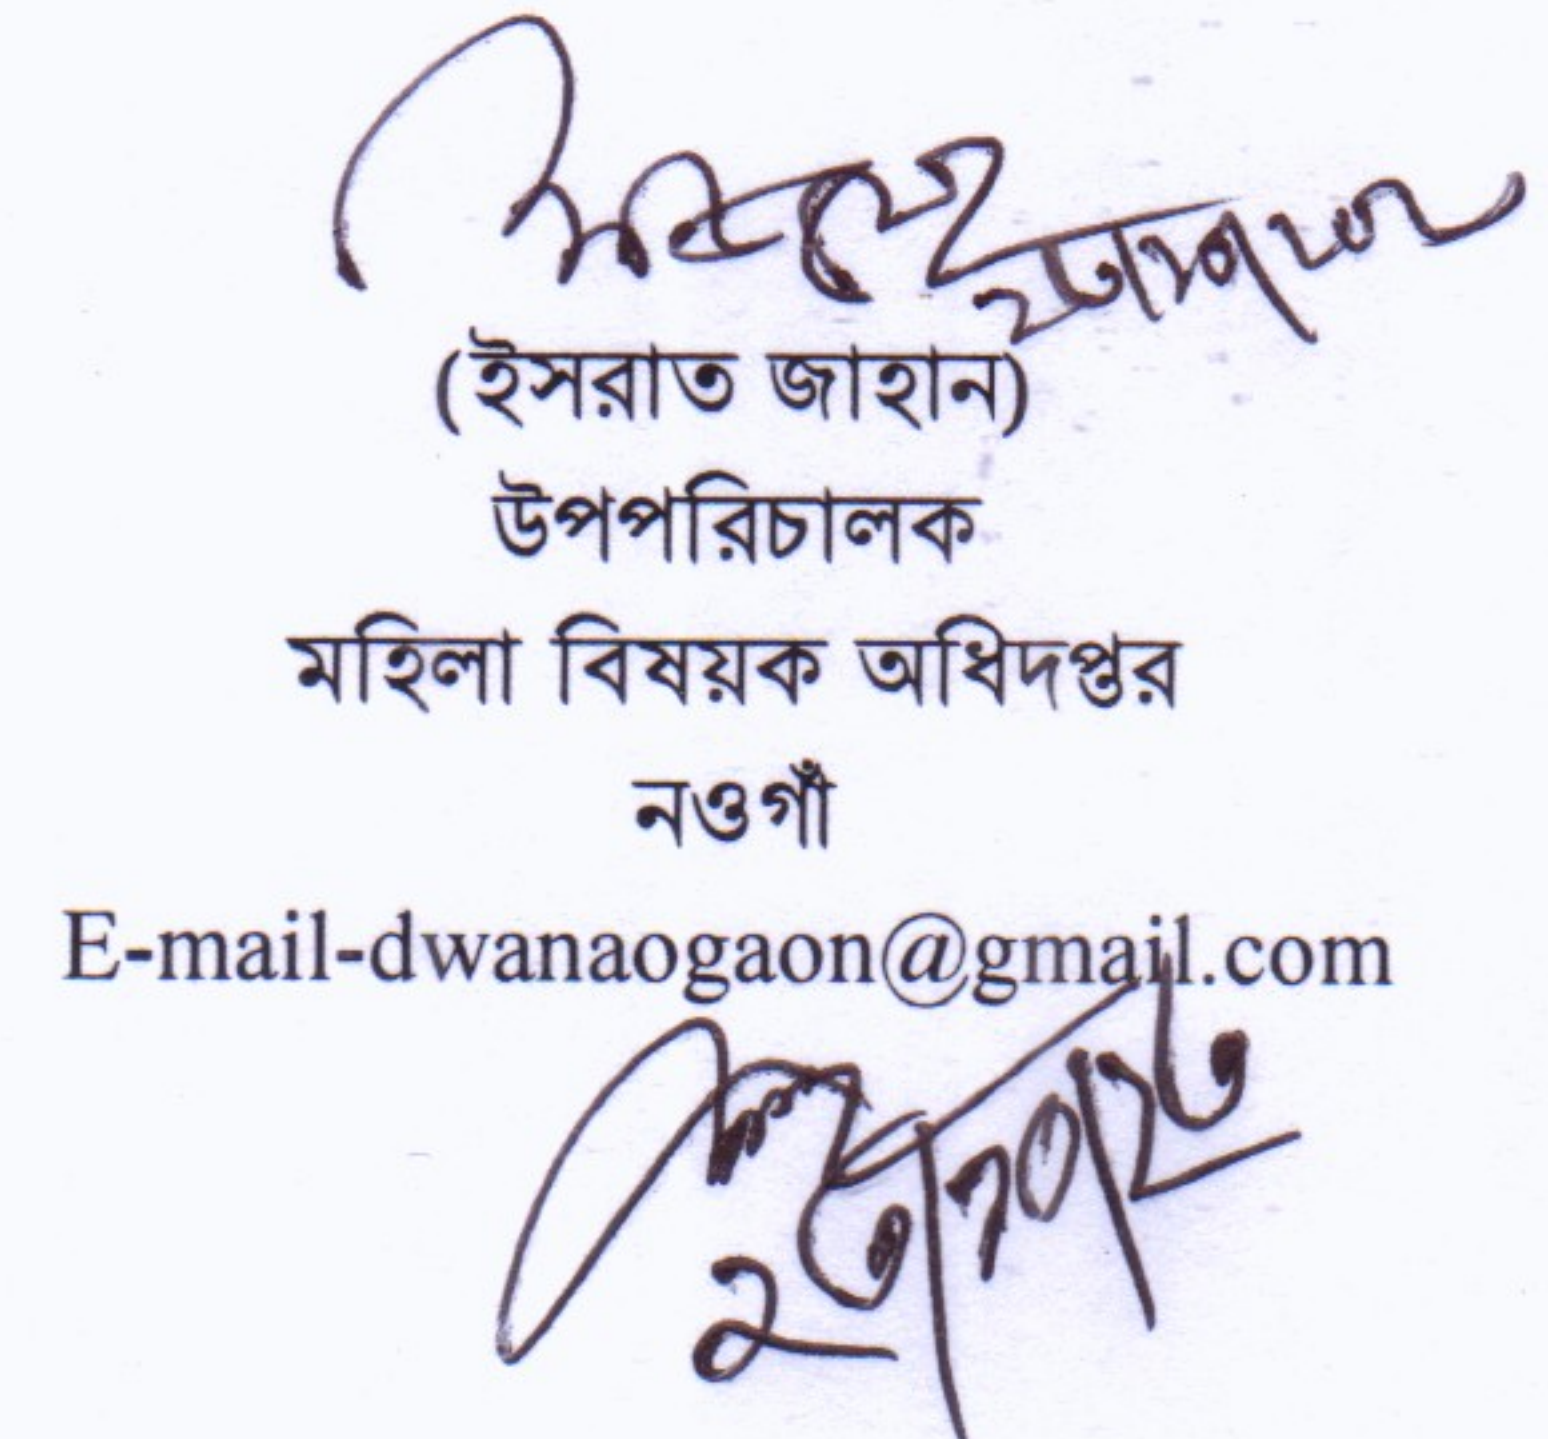 (ইসরাত জাহান)
উপপরিচালক
মহিলা বিষয়ক অধিদপ্তর
নওগাঁ
E-mail-dwanaogaon@gmail.com